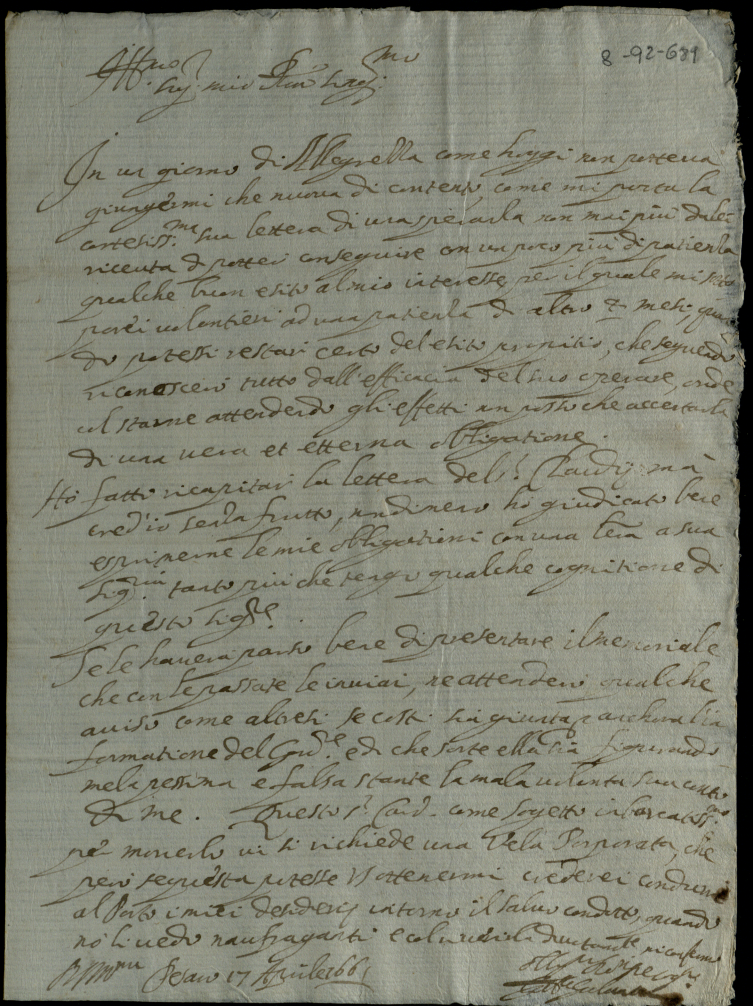 8-92-681
Ill.mo
Sig. mio P.ron
In un giorno di Allegrezza come hoggi non potteva
giungermi che nuova di contento, come mi porta la
cortesiss.ma sua lettera di una speranza non mai più da lei
ricevuta di potter conseguire con un poco più di patienza
qualche buon esito al mio interesse, per il quale mi
porei volontieri ad una patienza di altro mesi, quan
do potessi restar certo del esito propitio, che seguendo
riconoscerò tutto dall'efficacia del suo operare, onde
col starne attendendo gli effetti non posso che accertarla
di una vera et etterna obbligatione.
Hò fatto ricapitar la lettera del S.r Claudij mà
cred'io senza frutto, nondimeno hò giudicato bene
esprimerne le mie obbligationi con una l'ra a sua
Sig.ria tanto più che tengo qualche cognitione di
questo Sig.re
Se le haverà parso bene di presentare il memoriale
che con le passate le inviai, ne attenderò qualche
aviso come altresì se costì sia giunta anchora l'in
formatione del Gov.re e di che sorte ella sia figurando
mela pessima e falsa stante la mala volontà sua contro
di me. Questo S.r Card. come sogetto
per moverlo vi si richiede una Vela Porporata, che
però se questa potesse ottenermi crederei condurre
al Porto i miei desiderij intorno il salvo condotto, quando
nò li vedo naufraganti e col
Pesaro 17 Aprile 1661